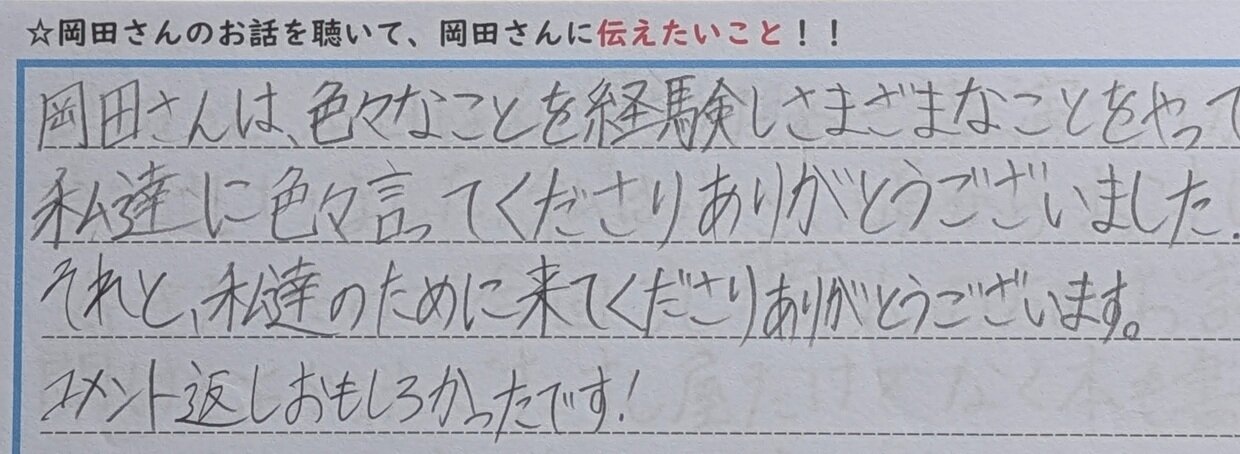 ☆岡田さんのお話を聴いて、岡田さんに伝えたいこと！！
岡田さんは、色々なことを経験しさまざまなことをやって
私達に色々言ってくださりありがとうございました.
それと、私達のために来てくださりありがとうございます。
コメント返しおもしろかったです!